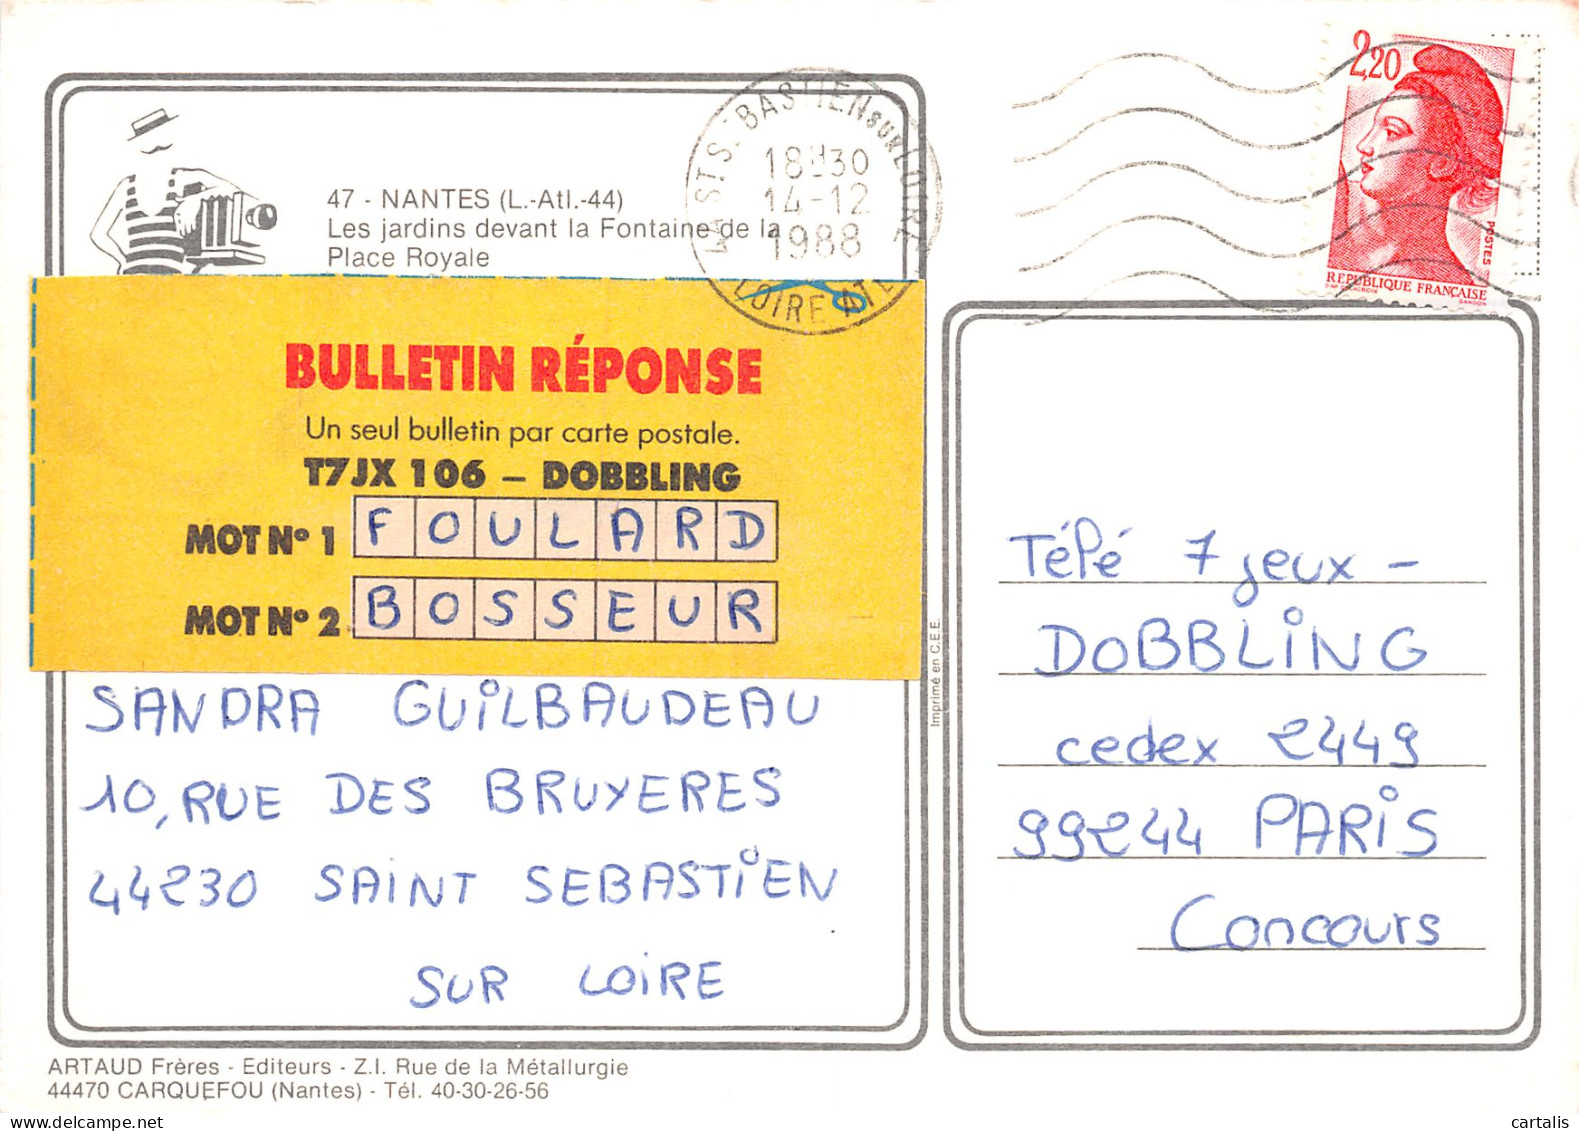 47 - NANTES (L.-Atl.-44)
Les jardins devant la Fontaine de la
Place Royale
ST SEBASTIEN sur LOIRE
18H30
14-12
1988
LOIRE ATL
2,20
POSTES
REPUBLIQUE FRANÇAISE
GANDON
BULLETIN RÉPONSE
Un seul bulletin par carte postale.
T7JX 106 – DOBBLING
MOT N° 1 FOULARD
MOT N° 2 BOSSEUR
SANDRA GUILBAUDEAU
10, RUE DES BRUYERES
44230 SAINT SEBASTIEN
SUR LOIRE
Imprimé en C.E.E.
Télé 7 jeux -
DOBBLING
cedex 2449
99244 PARIS
Concours
ARTAUD Frères - Editeurs - Z.I. Rue de la Métallurgie
44470 CARQUEFOU (Nantes) - Tél. 40-30-26-56
delcampe.net
cartalis